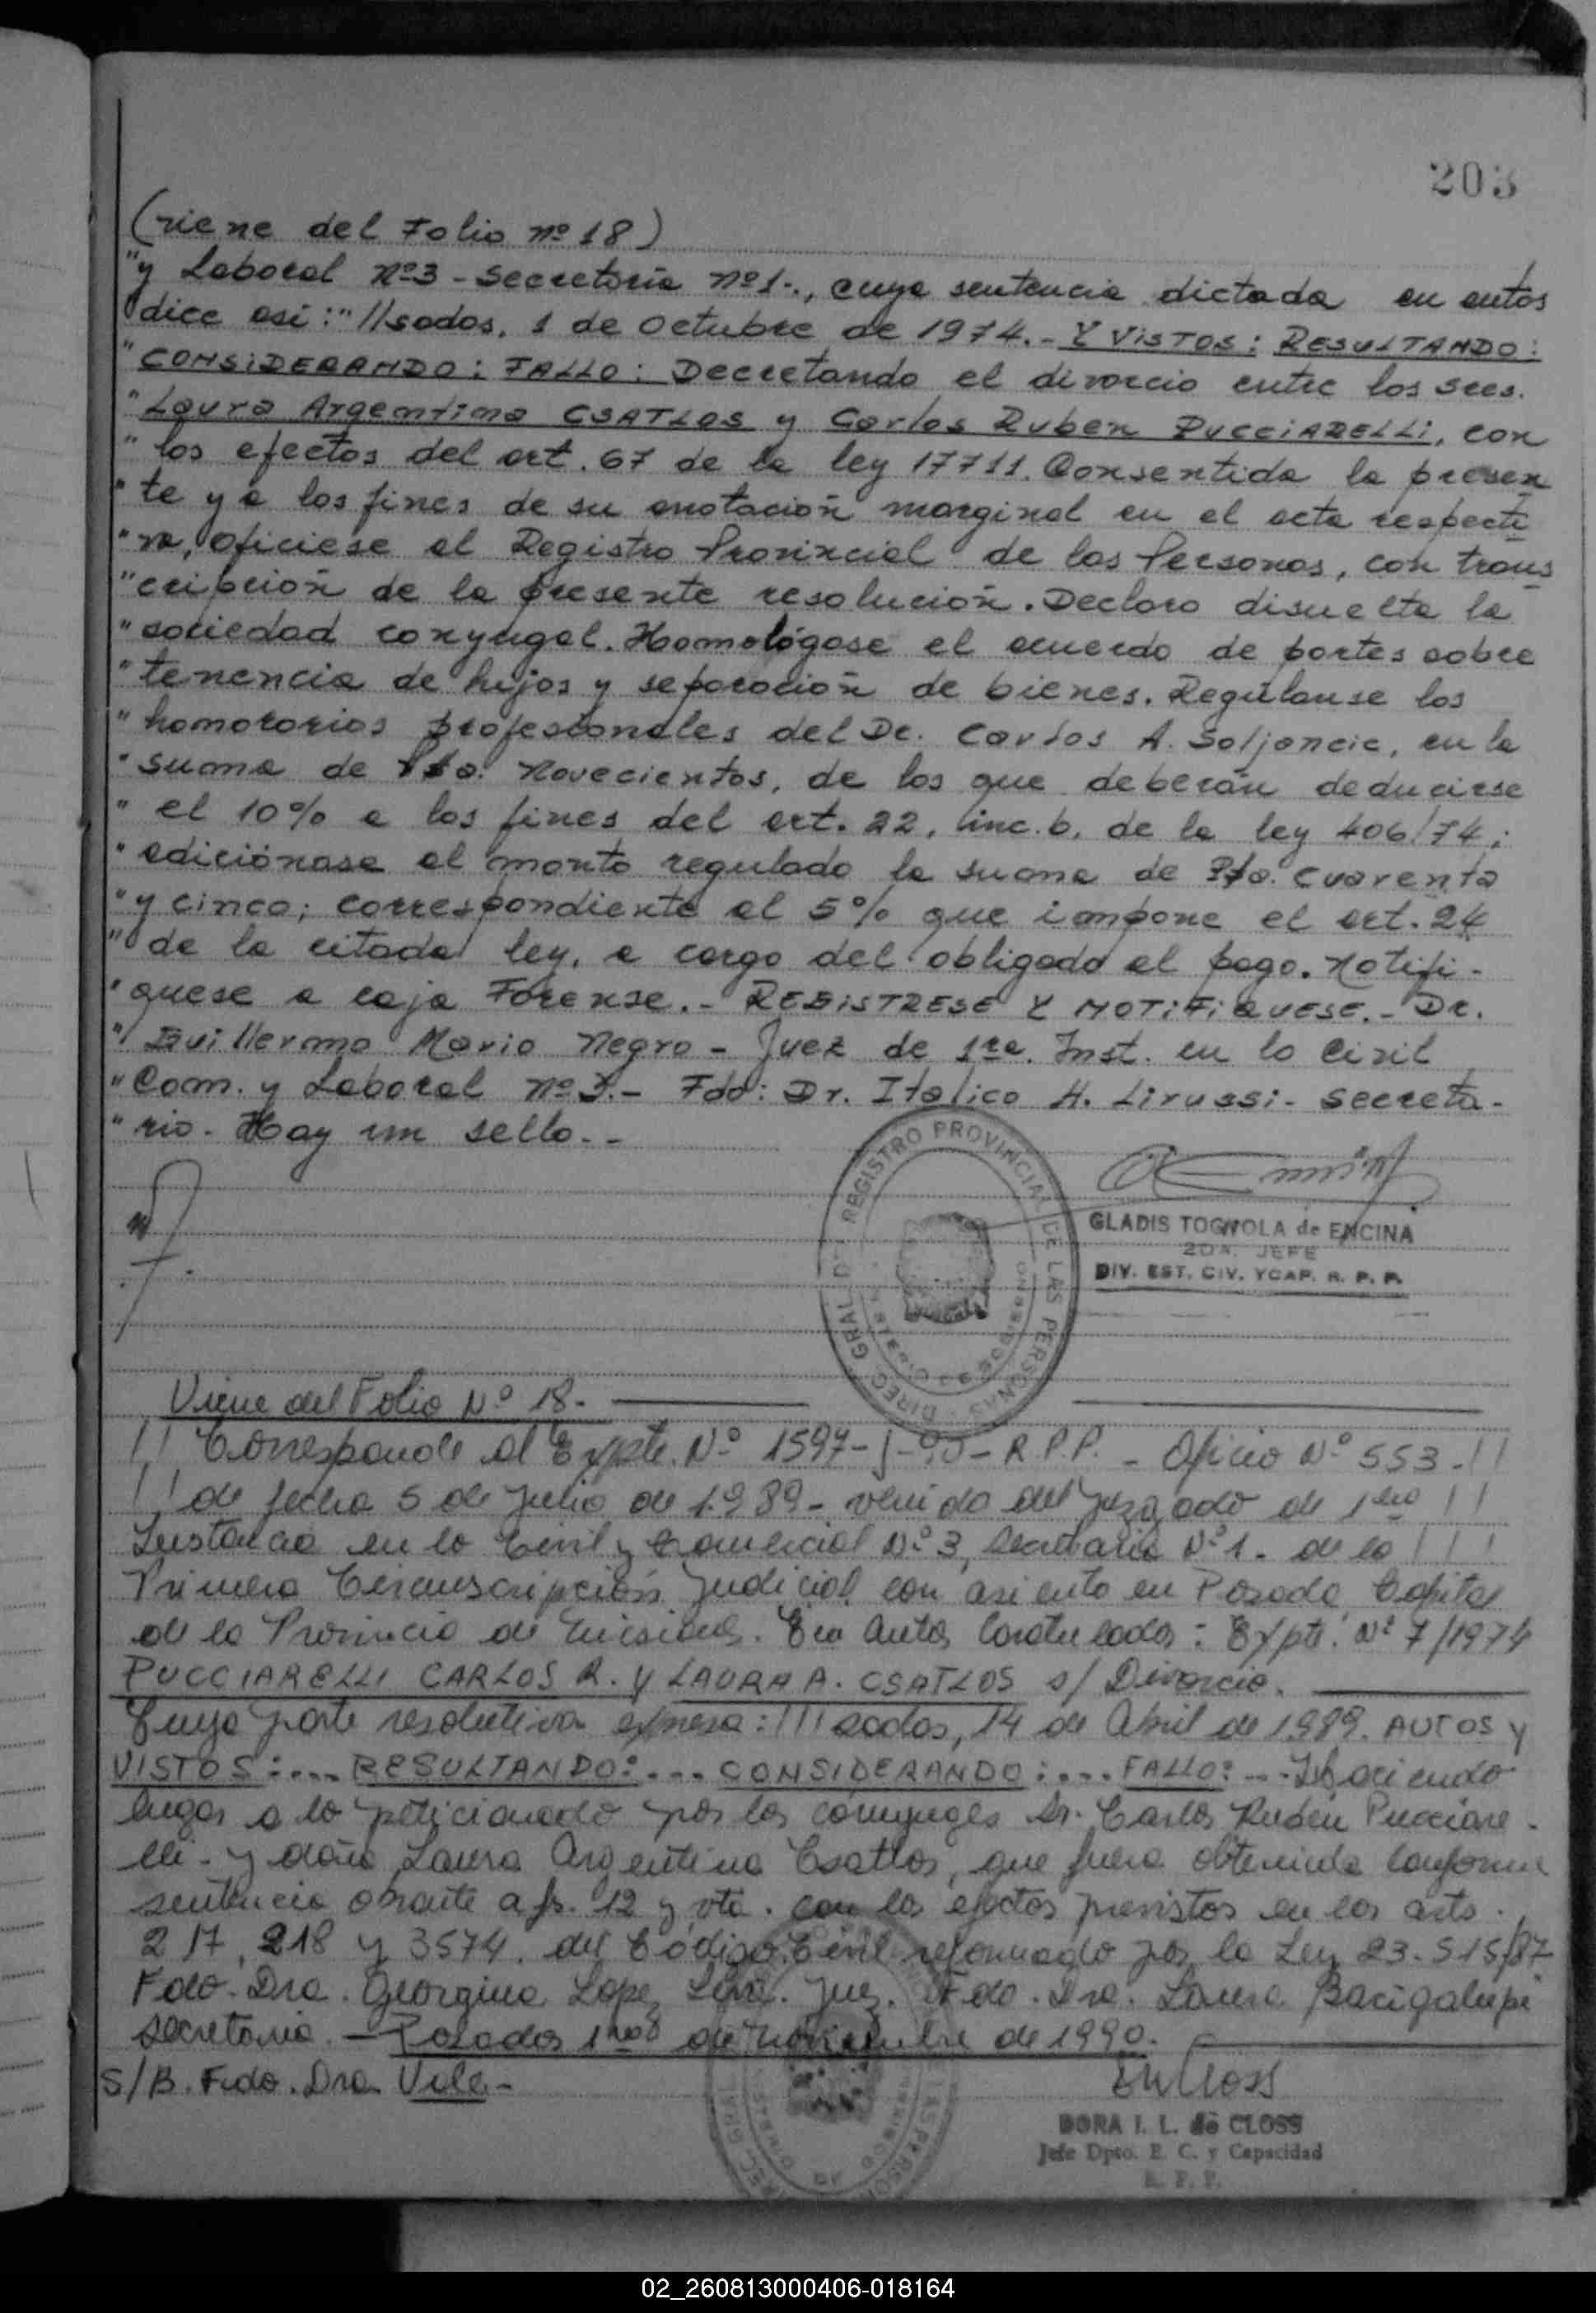 203
(viene del Folio nº 18)
"y Laboral Nº3 - Secretoria nº1-., cuya sentencia dictada en autos
"dice asi:" //sadas, 1 de Octubre de 1974.- Y VISTOS: RESULTANDO:
"CONSIDERANDO: FALLO: Decretando el divorcio entre los sres.
"Laura Argentina CSATLOS y Carlos Ruben PUCCIARELLI, con
"los efectos del art. 67 de la ley 17711. Consentida la presen
"te y a los fines de su anotación marginal en el acta respecti
"va, oficiese al Registro Provincial de las Personas, con trans
"cripción de la presente resolución. Declaro disuelta la
"sociedad conyugal. Homológase el acuerdo de partes sobre
"tenencia de hijos y separación de bienes. Regúlanse los
"honorarios profesionales del Dr. Carlos A. Soljancic, en la
"suma de Novecientos, de los que deberán deducirse
"el 10% a los fines del art. 22, inc. b, de la ley 406/74;
"adiciónase al monto regulado la suma de Cuarenta
"y cinco; correspondiente al 5% que impone el art. 24
"de la citada ley, a cargo del obligado al pago. Notifi-
"quese a caja Forense.- REGISTRESE Y NOTIFIQUESE.- Dr.
"Guillermo Mario Negro - Juez de 1ra. Inst. en lo Civil
"Com. y Laboral Nº3.- Fdo: Dr. Italico H. Lirussi - Secreta-
"rio - Hay un sello.--
DIREC. GRAL. DEL REGISTRO PROVINCIAL DE LAS PERSONAS
GLADIS TOGNOLA de ENCINA
2DA. JEFE
DIV. EST. CIV. YCAP. R. P. P.
Viene del Folio Nº 18.-
!! Corresponde al Expte. Nº 1597-J-90-R.P.P. - Oficio Nº 553-!!
!! de fecha 5 de Julio de 1989- venido del Juzgado de 1era !!
Instancia en lo Civil y Comercial Nº 3, Secretaria Nº 1. de la !!!
Primera Circunscripción Judicial con asiento en Posada Capital
de la Provincia de Misiones. En Autos Caratulados: Expte. Nº 7/1974
PUCCIARELLI CARLOS R. Y LAURA A. CSATLOS s/ Divorcio.
Cuya parte resolutiva expresa: !!! sadas, 14 de Abril de 1989. AUTOS y
VISTOS:... RESULTANDO:... CONSIDERANDO:... FALLO:... Haciendo
lugar a lo peticionado por los cónyuges Sr. Carlos Rubén Pucciare-
lli - y doña Laura Argentina Csatlos, que fuera obtenida conforme
sentencia obrante a fs. 12 y vta. con los efectos previstos en los arts.
217, 218 y 3574. del Código Civil reformado por la Ley 23.515/87
Fdo. Dra. Georgina Lopez Juez. Fdo. Dra. Laura Bacigalupi
secretaria. - Posadas 1ro de Noviembre de 1990.
S/B. Fdo. Dra. Vila-
DORA I. L. de CLOSS
Jefe Dpto. E. C. y Capacidad
R. P. P.
02_260813000406-018164